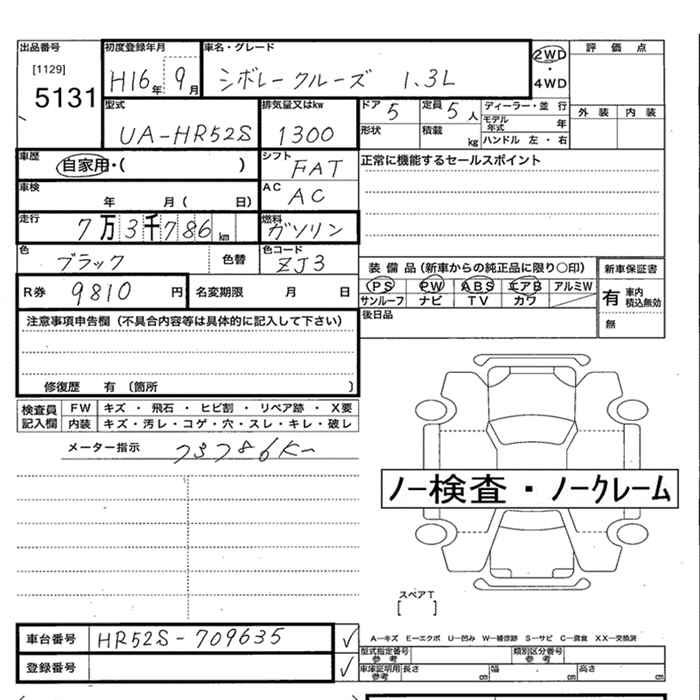 出品番号 初度登録年月 車名・グレード 2WD 評価点
[1129] 5131 H16年 9月 シボレークルーズ 1.3L ・ 4WD
型式 排気量又はkw ドア 5 定員 5人 ディーラー・並行 外装 内装
UA-HR52S 1300 形状 積載 kg モデル年式 年
ハンドル 左・右
車歴 自家用・( ) シフト FAT 正常に機能するセールスポイント
車検 年 月( 日) AC AC
走行 7万3千786km 燃料 ガソリン
色 ブラック 色替 色コード ZJ3
装備品(新車からの純正品に限り○印) 新車保証書
R券 9810円 名変期限 月 日 PS PW ABS エアB アルミW 有 車内積込無効
サンルーフ ナビ TV カワ
注意事項申告欄(不具合内容等は具体的に記入して下さい) 後日品 無
修復歴 有 〔箇所 )
検査員記入欄 FW キズ・飛石・ヒビ割・リペア跡・X要
内装 キズ・汚レ・コゲ・穴・スレ・キレ・破レ
メーター指示 73786K
ノー検査・ノークレーム
スペアT
[ ]
車台番号 HR52S-709635 ✓ A−キズ E−エクボ U−凹み W−補修跡 S−サビ C−腐食 XX−交換済
型式指定番号 参考 類別区分番号 参考
登録番号 ✓ 車庫証明用 参考 長さ cm 幅 cm 高さ cm